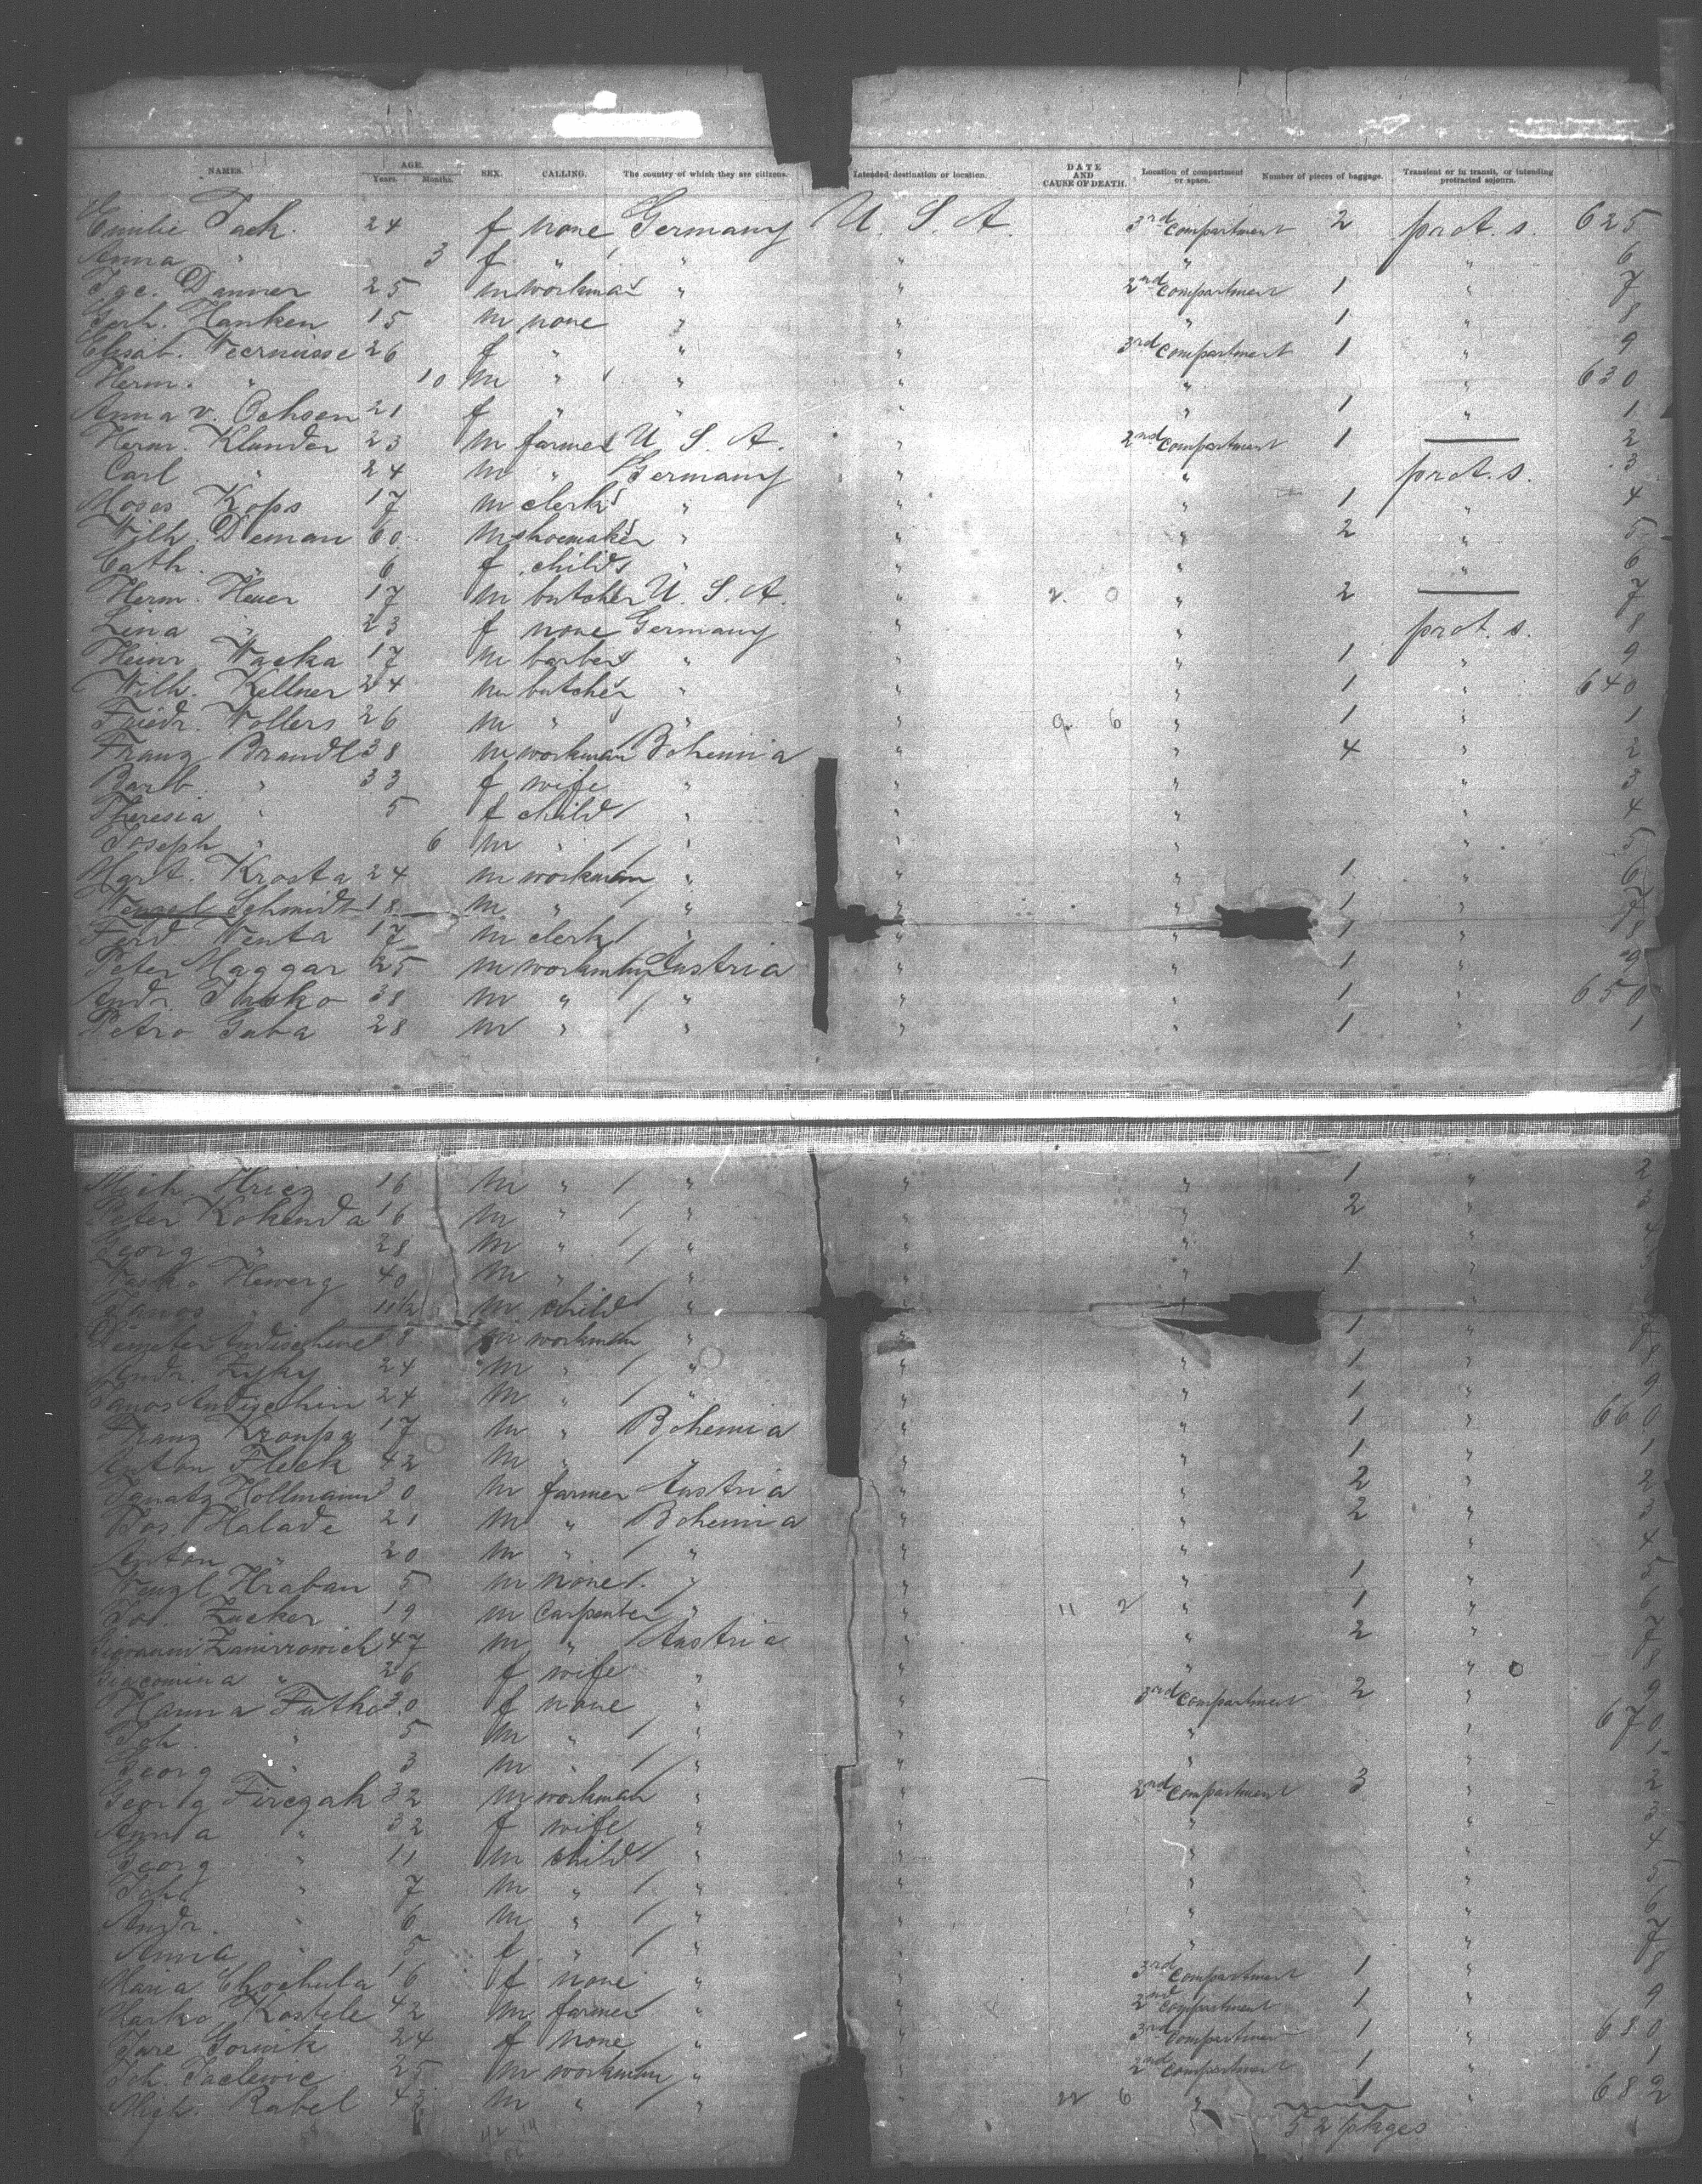 NAMES. AGE. Years. Months. SEX. CALLING. The country of which they are citizens. Intended destination or location. DATE AND CAUSE OF DEATH. Location of compartment or space. Number of pieces of baggage. Transient or in transit, or intending protracted sojourn.
Emilie Tack. 24 f none Germany U. S. A. 3rd compartment 2 prot. s. 625
Anna " 3 f " " " " " 6
Jac. Danner 25 m workman " " 2nd compartment 1 " 7
Gerh. Hanken 15 m none " " " 1 " 8
Elisab. 26 f " " " 3rd compartment 1 " 9
Herm. " 10 m " " " " " 630
Anna v. Ochsen 21 f " " " " 1 " 1
Herm. Klunder 23 m farmer U S. A. " 2nd compartment 1 — 2
Carl " 24 m " Germany " " prot. s. 3
Moses Kops 17 m clerk " " " 1 " 4
Wilh. Deman 60 m shoemaker " " " 2 " 5
Cath. " 6 f child " " " " 6
Herm. Heuer 17 m butcher U. S. A. " 2 0 " 2 — 7
Lina " 23 f none Germany " " prot. s. 8
Heinr. Wacka 17 m barber " " " 1 " 9
Wilh. Kellner 24 m butcher " " " 1 " 640
Friedr. Wollers 26 m " " " 9 6 " 1 " 1
Franz Brandl 38 m workman Bohemia " " 4 " 2
Barb. " 33 f wife " " " " 3
Theresia " 5 f child " " " " 4
Joseph " 6 m " " " " " 5
Mart. Krosta 24 m workman " " " 1 " 6
Wenzel Schmidt 18 m " " " " 1 " 7
Ferd. Wenta 17 m clerk " " " 1 " 8
Peter Maggar 25 m workman Austria " " 1 " 9
Andr. 38 m " " " " 1 " 650
Petro Guba 28 m " " " " 1 " 1
Mich. Hricz 16 m " " " " 1 " 2
Peter Kokenda 16 m " " " " 2 " 3
Georg " 28 m " " " " " 4
Hewerg 40 m " " " " 1 "
Janos " 11½ m child " "
Demeter 8 m workman " " 1 " 7
Andr. Zyky 24 m " " " " 1 " 8
Janos Andischin 24 m " " " " 1 " 9
Franz Kroupa 17 m " Bohemia " " 1 " 660
Anton Fleck 42 m " " " " 1 " 1
Ignatz Hollmann 30 m farmer Austria " " 2 " 2
Jos. Halade 21 m " Bohemia " " 2 " 3
Anton " 20 m " " " " " 4
Wenzl Hraban 5 m none " " " 1 " 5
Jos. Zucker 19 m carpenter " " 11 2 " 1 " 6
Giovanni Zanirrowich 47 m " Austria " " 2 " 7
Giacomina " 26 f wife " " " " 8
Hanna Futko 30 f none " " 3rd compartment 2 " 9
Joh. " 5 m " " " " " 670
Georg " 3 m " " " " " 1
Georg Firczak 32 m workman " " 2nd compartment 3 " 2
Anna " 32 f wife " " " " 3
Georg " 11 m child " " " " 4
Joh. " 7 m " " " " " 5
Andr. " 6 m " " " " " 6
Anna " 5 f " " " " " 7
Maria Chochula 16 f none " " 3rd compartment 1 " 8
Marko Kostele 42 m farmer " " 2nd compartment 1 " 9
Jare Gornik 24 f none " " 3rd compartment 1 " 680
Joh. Jaclewic 25 m workman " " 2nd compartment 1 " 1
Mich. Rabel 43 m " " " 22 6 " 1 " 682
52 pkges